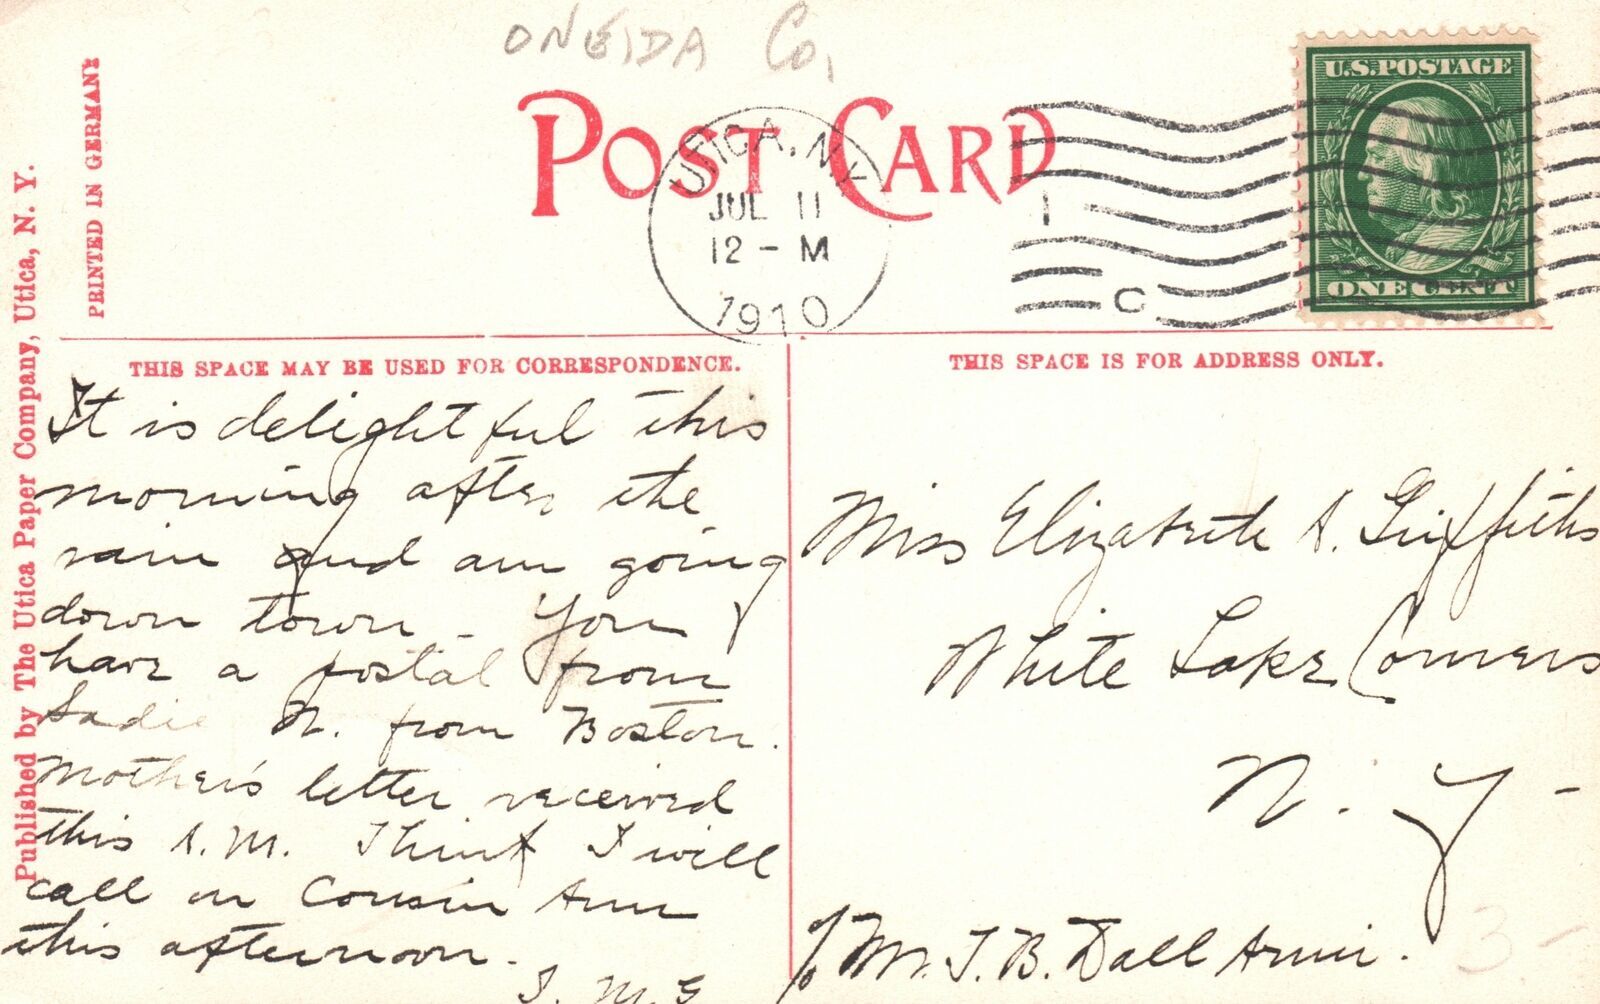 ONEIDA Co,
POST CARD
UTICA, N.Y.
JUL 11
12 - M
1910
1
C
U.S.POSTAGE
ONE CENT
PRINTED IN GERMANY
Published by The Utica Paper Company, Utica, N. Y.
THIS SPACE MAY BE USED FOR CORRESPONDENCE.
It is delightful this
morning after the
rain and am going
down town - You
have a postal from
Sadie N. from Boston.
Mother's letter received
this A.M. Think I will
call on Cousin Ann
this afternoon.
S. M. G
THIS SPACE IS FOR ADDRESS ONLY.
Miss Elizabeth A. Griffiths
White Lake Corners
N. Y -
℅ Mr. J. B. Dall Armi.
3 -